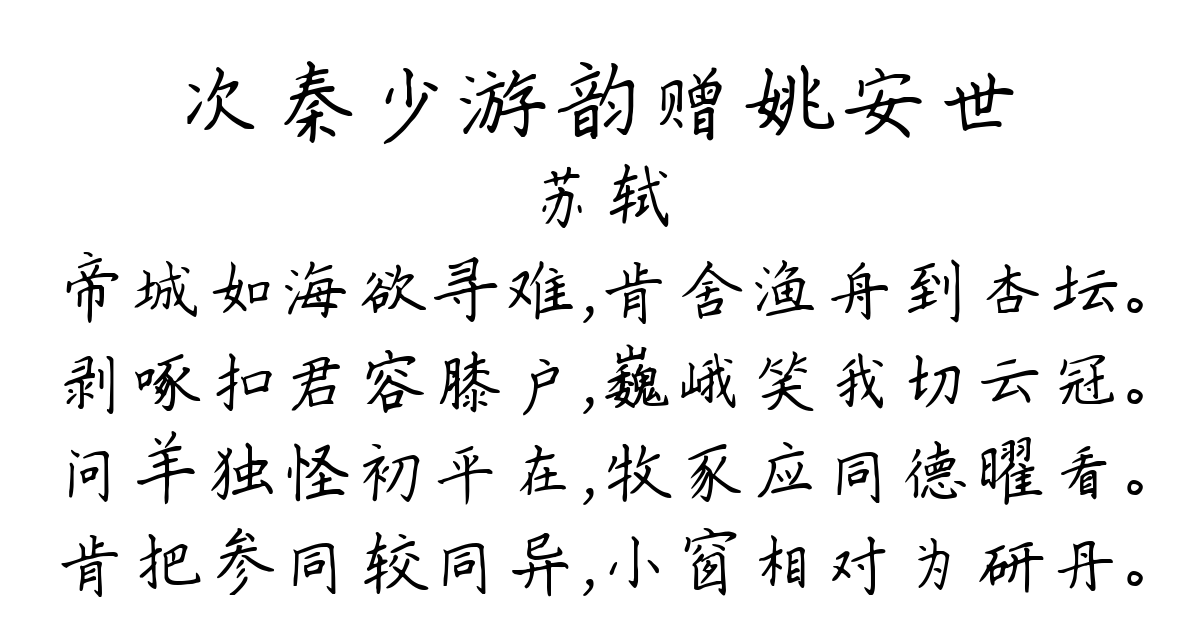 次秦少游韵赠姚安世
苏轼
帝城如海欲寻难,肯舍渔舟到杏坛。
剥啄扣君容膝户,巍峨笑我切云冠。
问羊独怪初平在,牧豕应同德曜看。
肯把参同较同异,小窗相对为研丹。